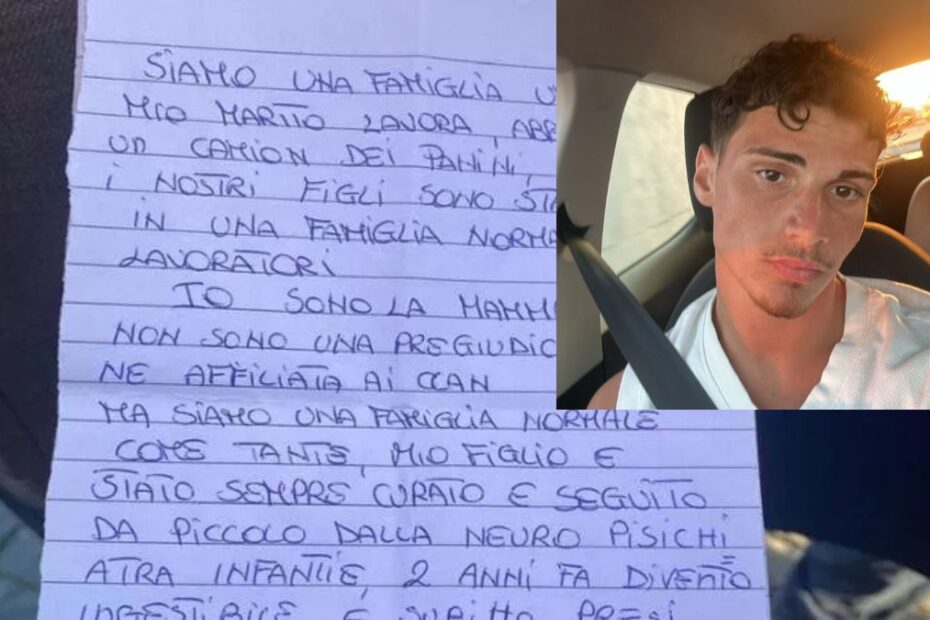 SIAMO UNA FAMIGLIA
MIO MARTIO LAVORA,
UN CAMION DEI PANINI,
I NOSTRI FIGLI SONO
IN UNA FAMIGLIA
LAVORATORI
IO SONO LA
NON SONO UNA
NE AFFILIATA AI CLAN
MA SIAMO UNA FAMIGLIA NORMALE
COME TANTE, MIO FIGLIO E
STATO SEMPRE CURATO E SEGUITO
DA PICCOLO DALLA NEURO PISICHI
ATRA INFANTIE, 2 ANNI FA DIVENTO